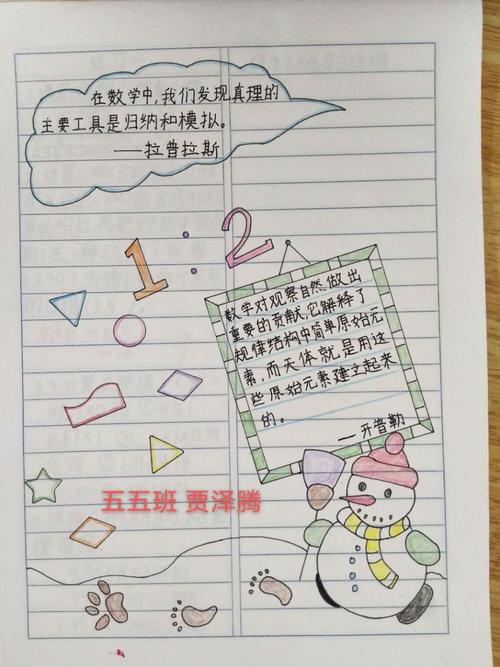 在数学中,我们发现真理的
主要工具是归纳和模拟。
——拉普拉斯
1:2
数学对观察自然做出
重要的贡献,它解释了
规律结构中简单原始元
素,而天体就是用这
些原始元素建立起来
的。
——开普勒
五五班 贾泽腾